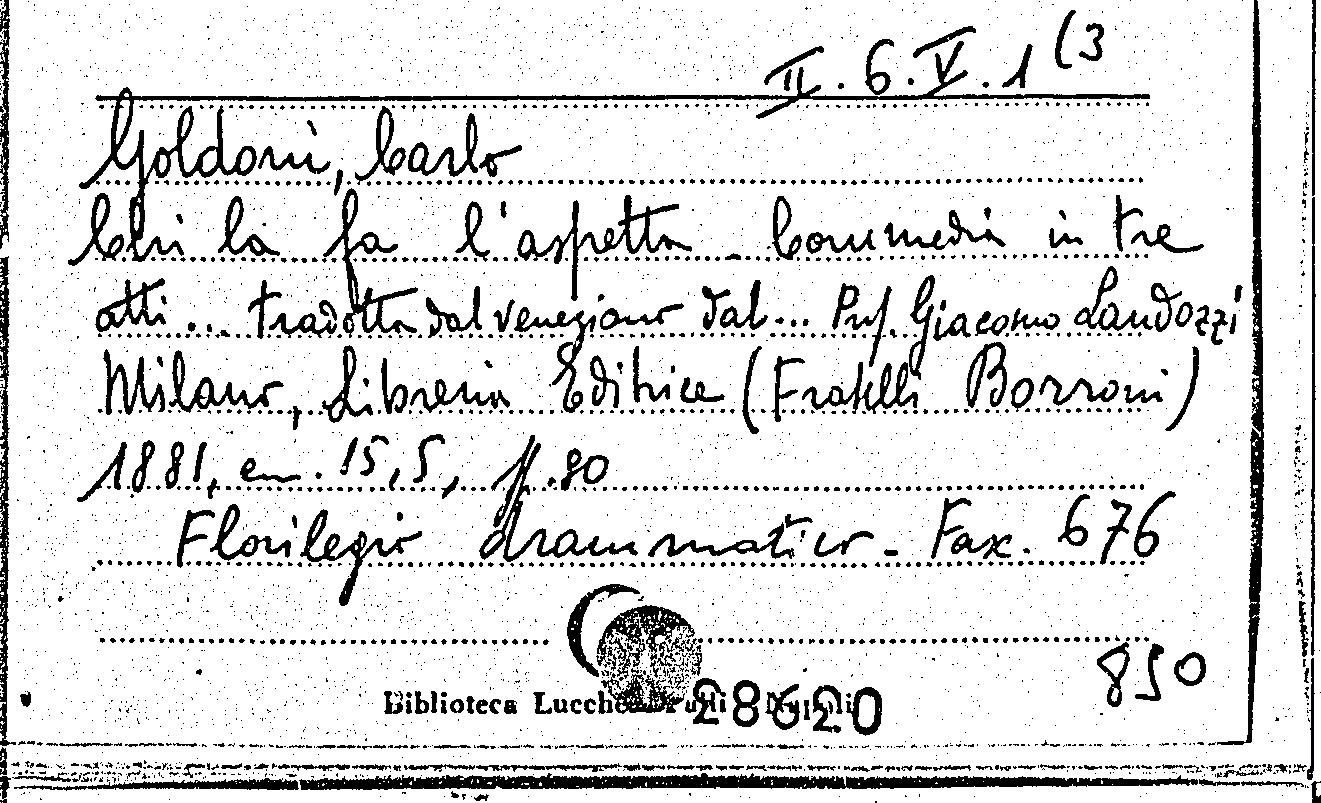 II.6.V.1(3
Goldoni, Carlo
Chi la fa l'aspetta. Commedia in tre
atti... tradotta dal veneziano dal... Prof. Giacomo Landozzi
Milano, Libreria Editrice (Fratelli Borroni)
1881, cm. 15,5, pp. 80
Florilegio drammatico - Fax. 676
850
Biblioteca Lucchesi
28620